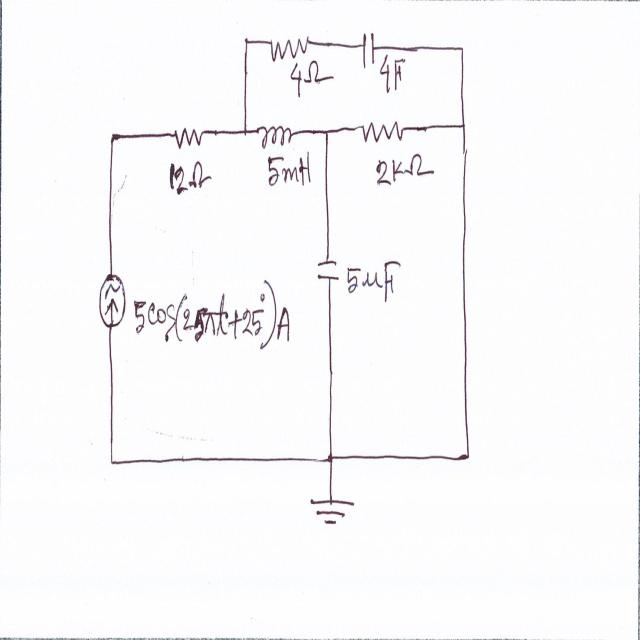 4Ω 4F
12Ω 5mH 2KΩ
5μF
5cos(25πt+25°)A